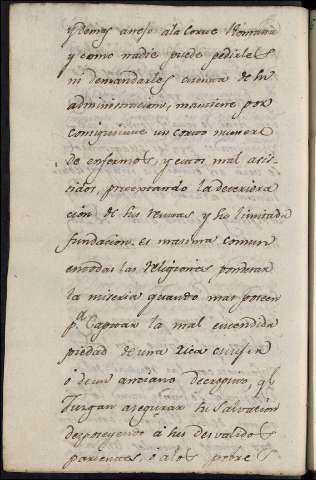 y demas anejo ala Corte Romana
y como nadie puede pedirles
ni demandarles cuenta de su
administracion, mantiene por
consiguiente un corto numero
de enfermos y estos mal asis-
tidos, pretextando la deteriora
cion de sus rentas y su limitada
fundacion. es maxima comun
en todas las religiones, ponderar
la miseria quando mas poseen
pa. Captar la mal entendida
piedad de una Rica
ó de un anciano decrepito, qe.
Juzgan asegurar su salvacion
desposeyendo á sus desvalidos
parientes, ó alos pobres